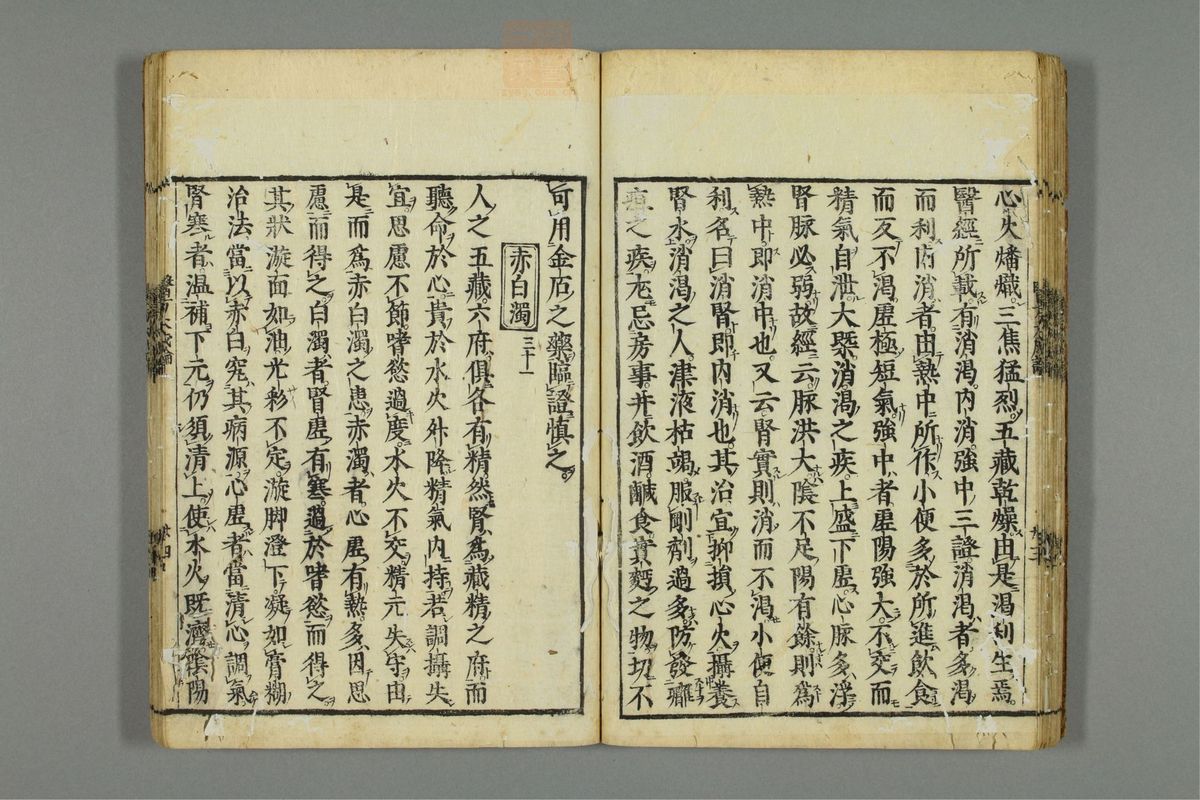 心火燔熾。三焦猛烈。五藏乾燥。由是渴利生焉。
醫經所載。有消渴。内消。強中三證。消渴者。多渴
而利。内消者。由熱中所作。小便多於所進飲食
而反不渴。虚極短氣。強中者。虚陽強大。不交而
精氣自泄。大槩消渴之疾。上盛下虚。心脉多浮
腎脉必弱。故經云。脉洪大。陰不足。陽有餘。則爲
熱中。即消中也。又云。腎實則消而不渴。小便自
利。名曰消腎。即内消也。其治宜抑損心火。攝養
腎水。消渴之人。津液枯竭。服剛劑過多。防發癰
疽之疾。尤忌房事。并飲酒。鹹食。實麪之物。切不
可用金石之藥。臨證慎之。
赤白濁 三十一
人之五藏六府。俱各有精。然腎爲藏精之府。而
聽命於心。貴於水火升降。精氣内持。若調攝失
宜。思慮不節。嗜慾過度。水火不交。精元失守。由
是而爲赤白濁之患。赤濁者。心虚有熱。多因思
慮而得之。白濁者。腎虚有寒。過於嗜慾而得之。
其状漩面如油。光彩不定。漩脚澄下。凝如膏糊
治法當以赤白究其病源。心虚者。當清心調氣
腎寒者。温補下元。仍須清上。使水火既濟。陰陽